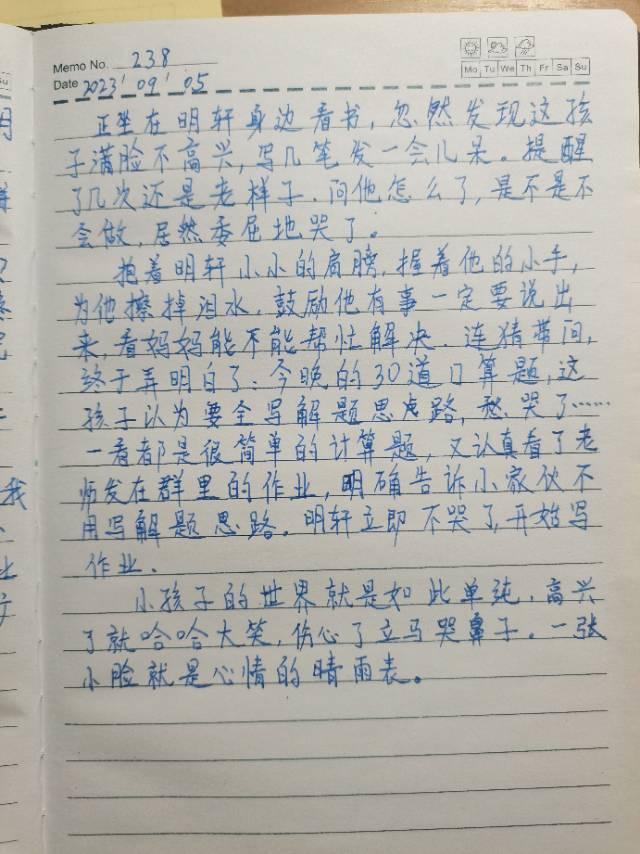 Memo No. 238
Mo Tu We Th Fr Sa Su
Date 2023' 09' 05
正坐在明轩身边看书，忽然发现这孩
子满脸不高兴，写几笔发一会儿呆。提醒
了几次还是老样子．问他怎么了，是不是不
会做，居然委屈地哭了。
抱着明轩小小的肩膀，握着他的小手，
为他擦掉泪水．鼓励他有事一定要说出
来，看妈妈能不能帮忙解决．连猜带问，
终于弄明白了：今晚的30道口算题，这
孩子认为要全写解题思虑路，愁哭了……
一看都是很简单的计算题，又认真看了老
师发在群里的作业，明确告诉小家伙不
用写解题思路。明轩立即不哭了，开始写
作业．
小孩子的世界就是如此单纯．高兴
了就哈哈大笑，伤心了立马哭鼻子．一张
小脸就是心情的晴雨表。